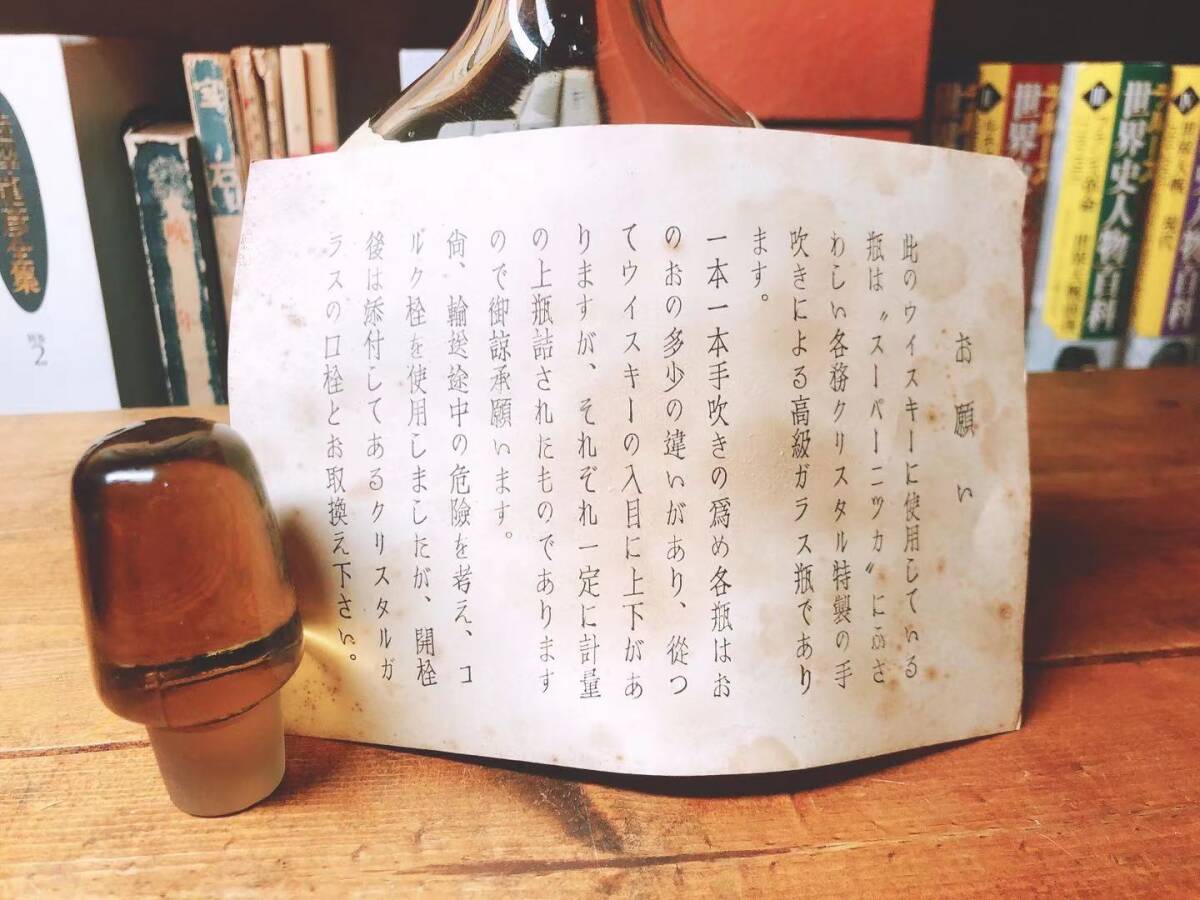 お願い
此のウイスキーに使用している
瓶は〝スーパーニツカ〟にふさ
わしい各務クリスタル特製の手
吹きによる高級ガラス瓶であり
ます。
一本一本手吹きの為め各瓶はお
のおの多少の違いがあり、従つ
てウイスキーの入目に上下があ
りますが、それぞれ一定に計量
の上瓶詰されたものであります
ので御諒承願います。
尙、輸送途中の危険を考え、コ
ルク栓を使用しましたが、開栓
後は添付してあるクリスタルガ
ラスの口栓とお取換え下さい。
2
世界
世界史人物百科